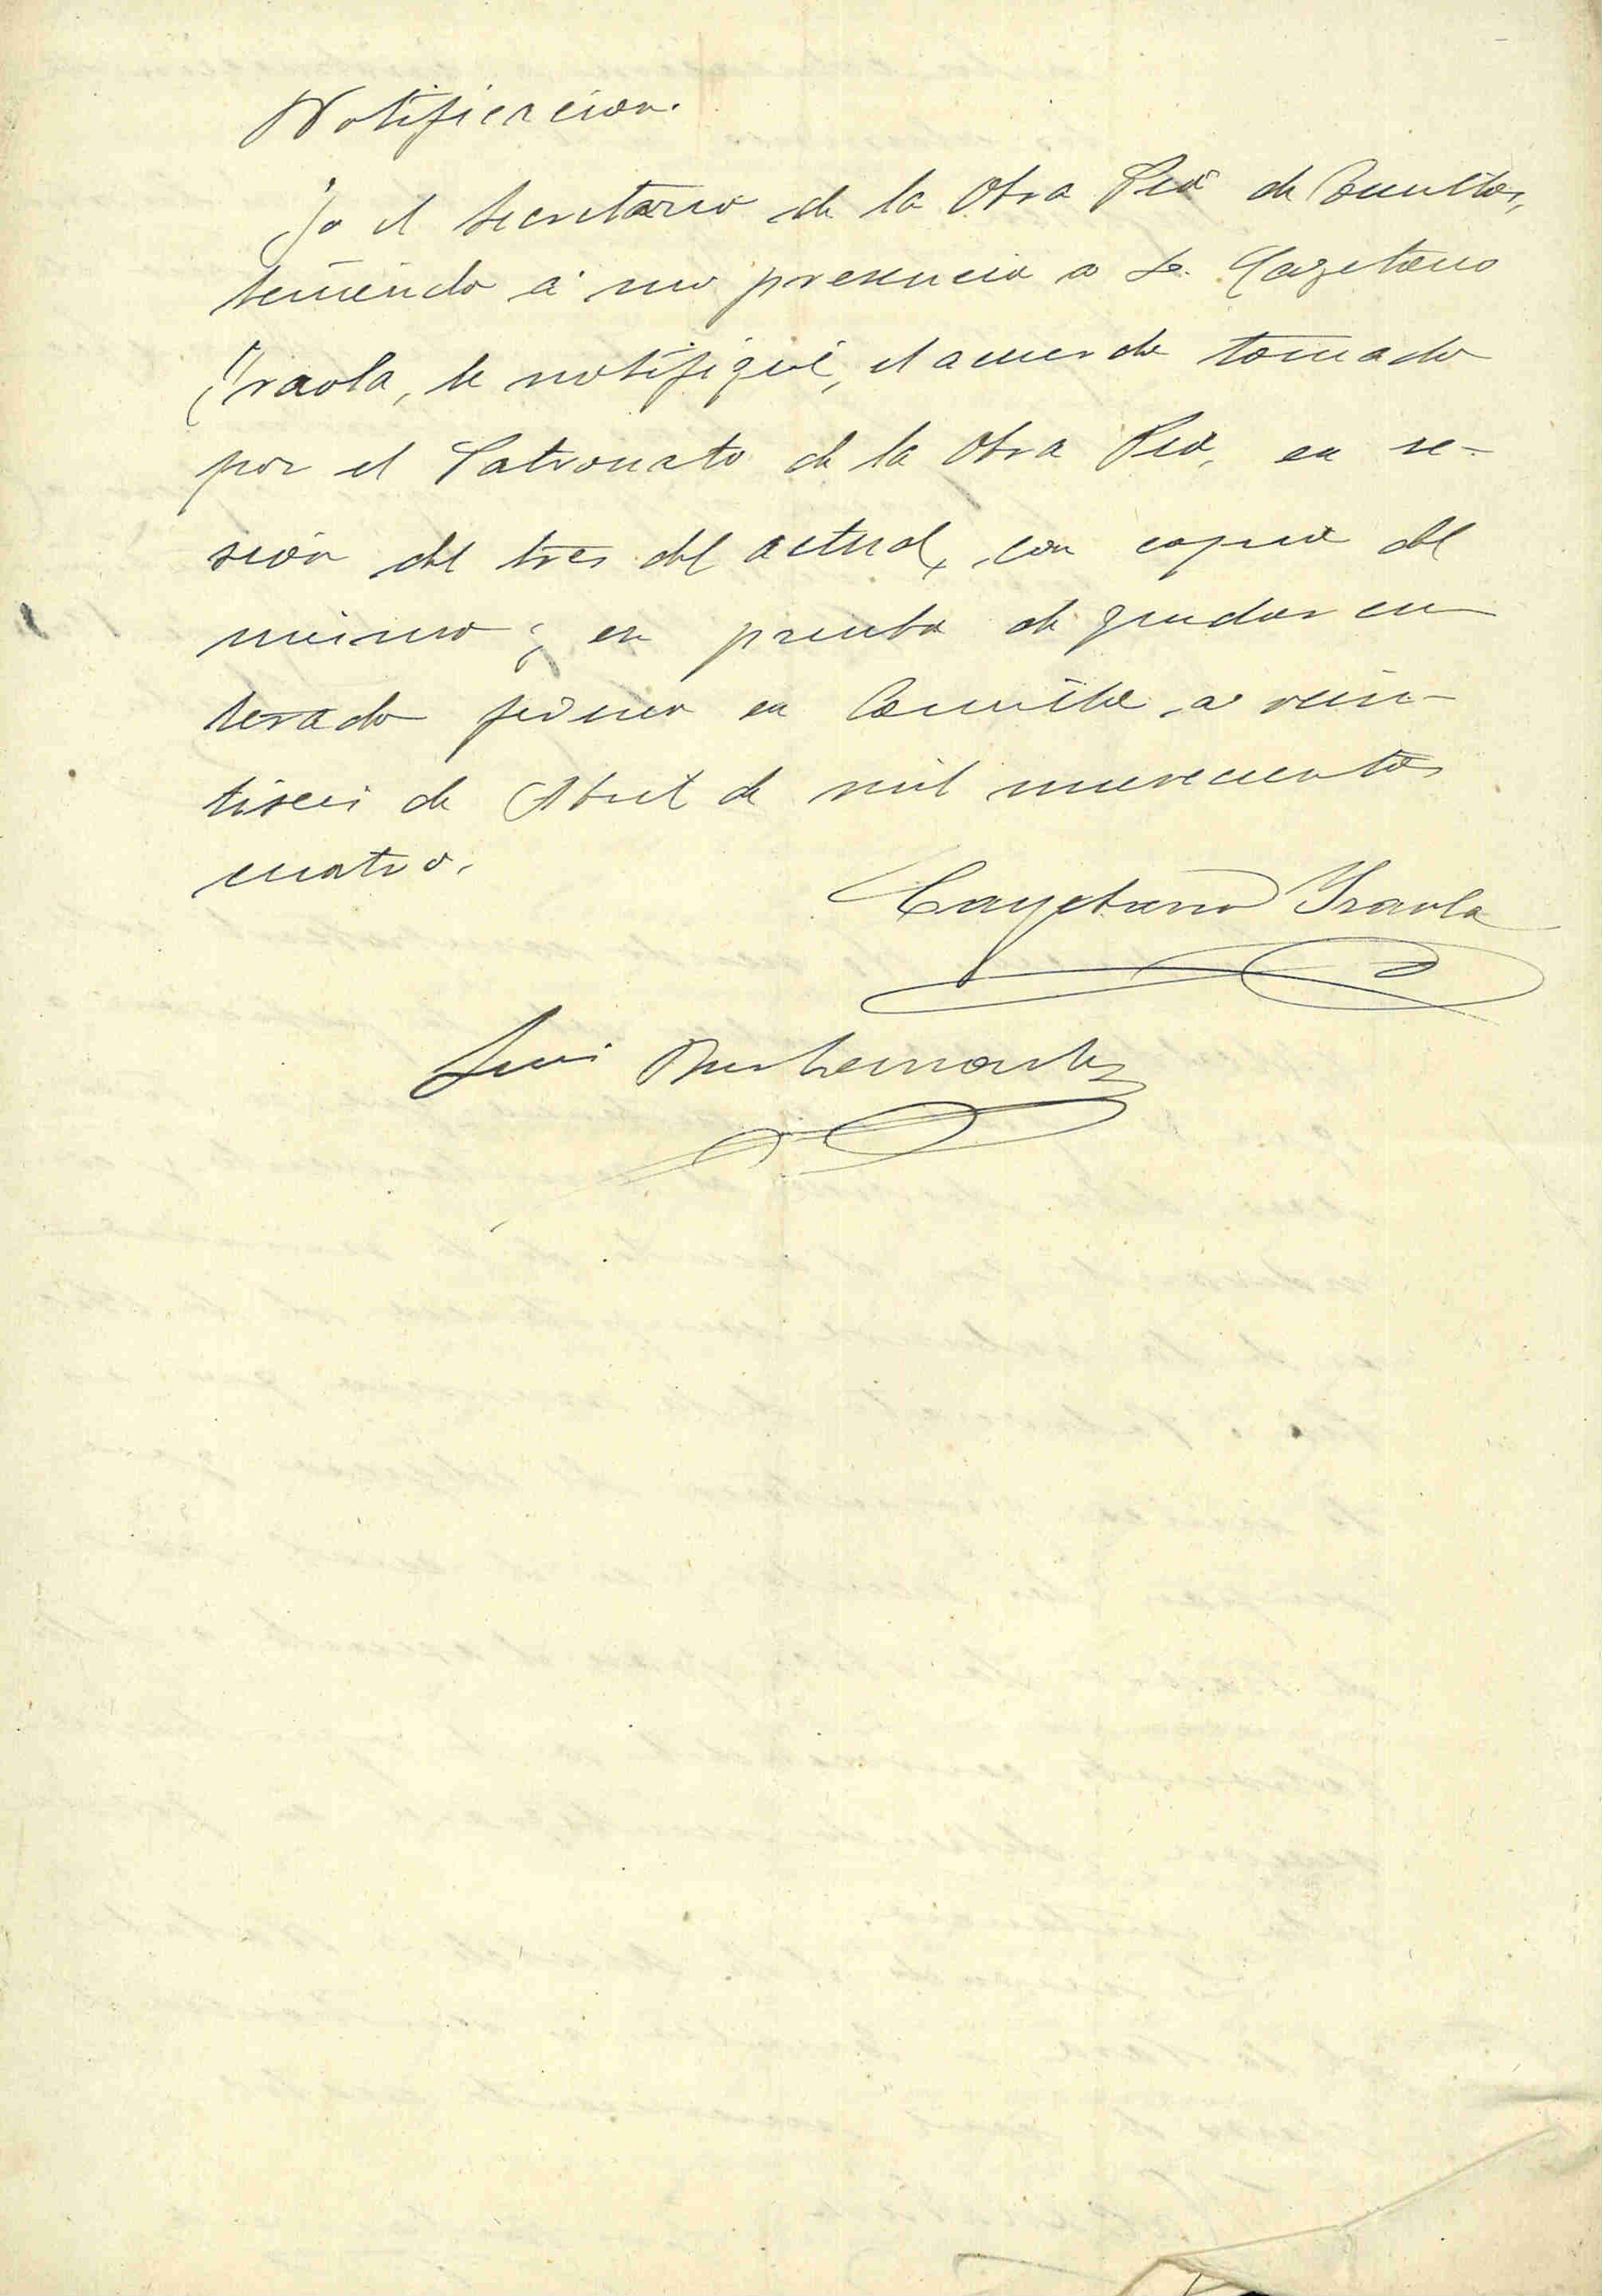 Notificacion.
Yo el Secretario de la Obra Pia de Comillas,
teniendo á mi presencia a D. Cayetano
Yraola, le notifiqué, el acuerdo tomado
por el Patronato de la Obra Pia, en se-
sión del tres del actual, con copia del
mismo; en prueba de quedar en
terado firma en Comillas a vein-
tiseis de Abril de mil novecientos
cuatro.
Cayetano Yraola
Luis